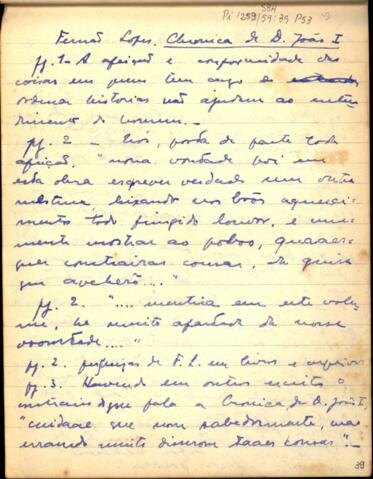 SBH
Pi 259/59:39 P53
Fernão Lopes, Chronica de D. João I
pg. 1 - A afeiçaã e comformidade das
cousas em quem tem cargo de
ordenar historias naõ ajudem ao enten
dimento do homem. -
pg. 2 - Nós, posta de parte toda
afeiçaã, "nossa vontade foi em
esta obra escrever verdade sem outra
mestura, leixando nos bõos aqueeci-
mentos todo fimgido louvor, e nua-
mente mostrar ao poboo, quaaes-
quer contrairas cousas, da guisa
que aveherõ..."
pg. 2. ".... mentira em este volu-
me, he muito afastada da nossa
voontade...."
pg. 2. pesquisas de F. L. em livros e
pg. 3. Havendo em outros escritos
contrairos do que fala a Cronica de D. João I,
"cuidaae que nom sabedormente, mas
errando muito disserom taaes cousas". -
39